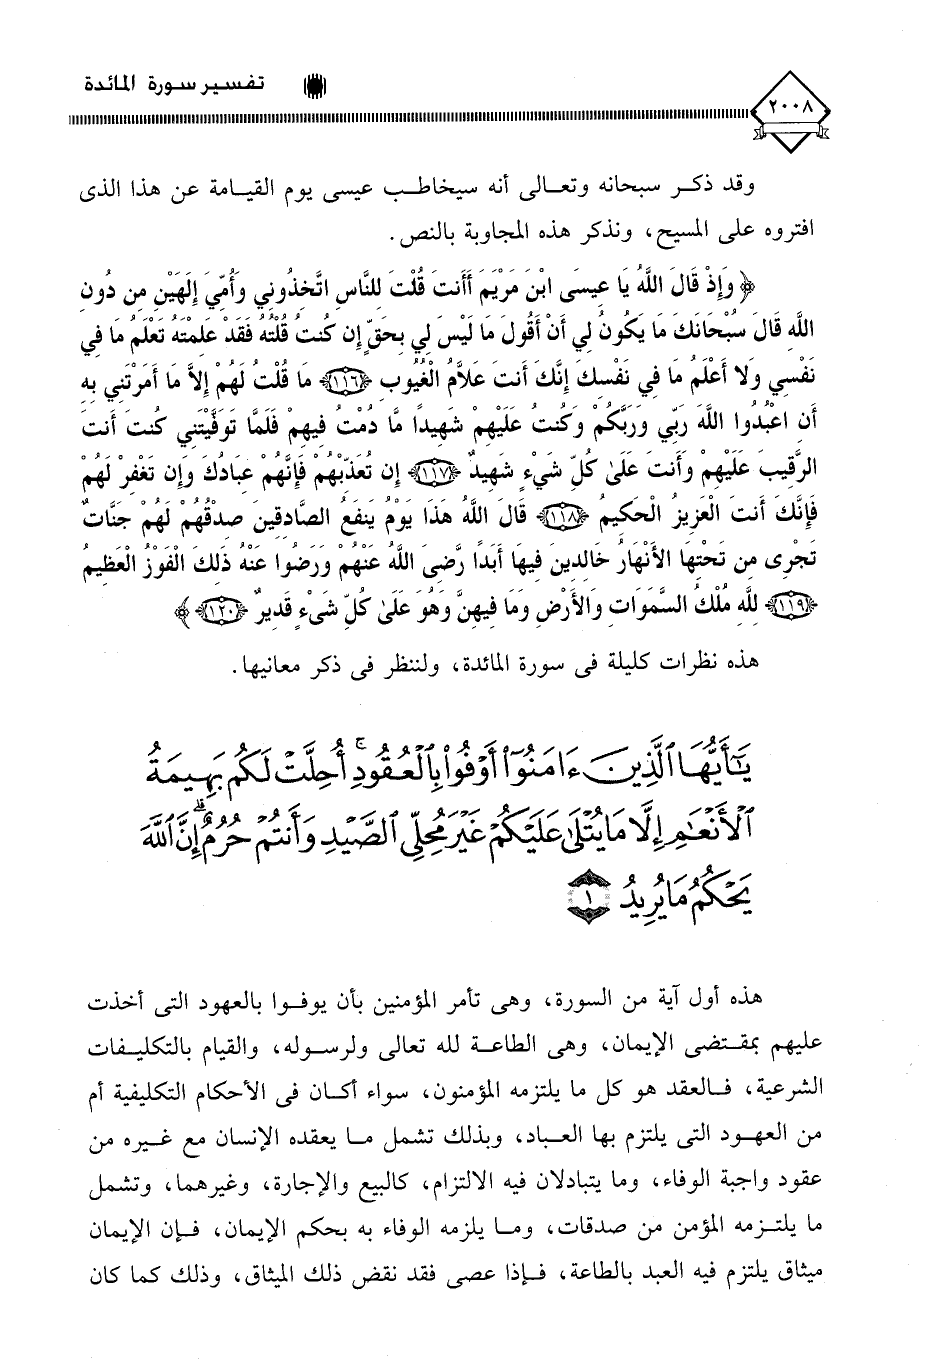 تفسير سورة المائدة
٢٠٠٨
وقد ذكر سبحانه وتعالى أنه سيخاطب عيسى يوم القيامة عن هذا الذى
افتروه على المسيح، ونذكر هذه المجاوبة بالنص.
﴿ وَإِذْ قَالَ اللَّهُ يَا عِيسَى ابْنَ مَرْيَمَ أَأَنتَ قُلْتَ لِلنَّاسِ اتَّخِذُونِي وَأُمِّيَ إِلَهَيْنِ مِن دُونِ
اللَّهِ قَالَ سُبْحَانَكَ مَا يَكُونُ لِي أَنْ أَقُولَ مَا لَيْسَ لِي بِحَقٍّ إِن كُنتُ قُلْتُهُ فَقَدْ عَلِمْتَهُ تَعْلَمُ مَا فِي
نَفْسِي وَلا أَعْلَمُ مَا فِي نَفْسِكَ إِنَّكَ أَنتَ عَلاَّمُ الْغُيُوبِ ﴿١١٦﴾ مَا قُلْتُ لَهُمْ إِلاَّ مَا أَمَرْتَنِي بِهِ
أَنِ اعْبُدُوا اللَّهَ رَبِّي وَرَبَّكُمْ وَكُنتُ عَلَيْهِمْ شَهِيدًا مَّا دُمْتُ فِيهِمْ فَلَمَّا تَوَفَّيْتَنِي كُنتَ أَنتَ
الرَّقِيبَ عَلَيْهِمْ وَأَنتَ عَلَىٰ كُلِّ شَيْءٍ شَهِيدٌ ﴿١١٧﴾ إِن تُعَذِّبْهُمْ فَإِنَّهُمْ عِبَادُكَ وَإِن تَغْفِرْ لَهُمْ
فَإِنَّكَ أَنتَ الْعَزِيزُ الْحَكِيمُ ﴿١١٨﴾ قَالَ اللَّهُ هَذَا يَوْمُ يَنفَعُ الصَّادِقِينَ صِدْقُهُمْ لَهُمْ جَنَّاتٌ
تَجْرِى مِن تَحْتِهَا الأَنْهَارُ خَالِدِينَ فِيهَا أَبَدًا رَّضِىَ اللَّهُ عَنْهُمْ وَرَضُوا عَنْهُ ذَلِكَ الْفَوْزُ الْعَظِيمُ
﴿١١٩﴾ لِلَّهِ مُلْكُ السَّمَوَاتِ وَالأَرْضِ وَمَا فِيهِنَّ وَهُوَ عَلَىٰ كُلِّ شَىْءٍ قَدِيرٌ ﴿١٢٠﴾ ﴾
هذه نظرات كليلة فى سورة المائدة، ولننظر فى ذكر معانيها.
يَٰٓأَيُّهَا ٱلَّذِينَ ءَامَنُوٓا۟ أَوْفُوا۟ بِٱلْعُقُودِ ۚ أُحِلَّتْ لَكُم بَهِيمَةُ
ٱلْأَنْعَٰمِ إِلَّا مَا يُتْلَىٰ عَلَيْكُمْ غَيْرَ مُحِلِّى ٱلصَّيْدِ وَأَنتُمْ حُرُمٌ ۗ إِنَّ ٱللَّهَ
يَحْكُمُ مَا يُرِيدُ ١
هذه أول آية من السورة، وهى تأمر المؤمنين بأن يوفوا بالعهود التى أخذت
عليهم بمقتضى الإيمان، وهى الطاعة لله تعالى ولرسوله، والقيام بالتكليفات
الشرعية، فالعقد هو كل ما يلتزمه المؤمنون، سواء أكان فى الأحكام التكليفية أم
من العهود التى يلتزم بها العباد، وبذلك تشمل ما يعقده الإنسان مع غيره من
عقود واجبة الوفاء، وما يتبادلان فيه الالتزام، كالبيع والإجارة، وغيرهما، وتشمل
ما يلتزمه المؤمن من صدقات، وما يلزمه الوفاء به بحكم الإيمان، فإن الإيمان
ميثاق يلتزم فيه العبد بالطاعة، فإذا عصى فقد نقض ذلك الميثاق، وذلك كما كان